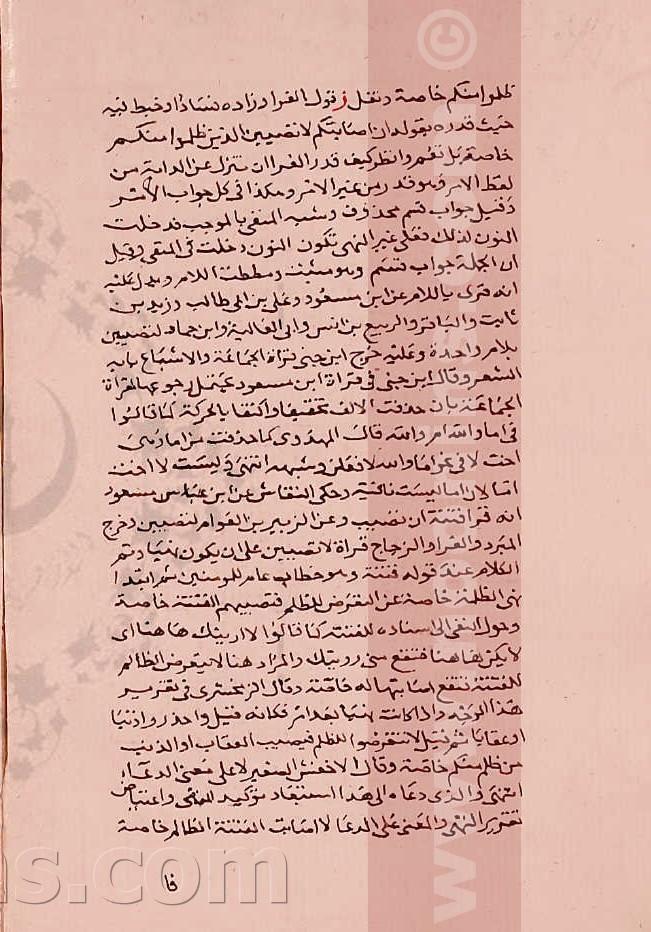 ظلموا منكم خاصة ونقل ز قول الفرا وزاده فسادا وخبط فيه
حيث قدره بقوله ان اصابتكم لا تصيبن الذين ظلموا منكم
خاصة بل تعم وانظر كيف قدر الفرا ان تنزل عن الدابة من
لفظ الامر وهو قدر من غير الامر وهكذا في كل جواب الامر
وقيل جواب قسم محذوف وشبه المنفي بالموجب فدخلت
النون لذلك فعلى غير النهي تكون النون دخلت في المنفي وقيل
ان الجملة جواب قسم وهو مثبت ومطلت اللام ويدل عليه
انه قرى باللام عن ابن مسعود وعلي بن ابي طالب وزيد بن
ثابت والباقر والربيع بن انس وابي العالية وابن جماز لتصيبن
بلام واحدة وعليه خرج ابن جني قراة الجماعة والاشباع بابه
الشعر وقال ابن جني في قراة ابن مسعود يحتمل رجوعها لقراة
الجماعة بان حذفت الالف تخفيفا واكتفا بالحركة كما قالوا
في اما والله ام والله قال المهدوي كما حذفت من ما وهي
اخت لا في نحو اما والله لافعلن وشبهه انتهى وليست لا اخت
اما لان اما ليست نافية وحكى النقاش عن ابن عباس مسعود
انه قرا فتنة ان تصيب وعن الزبير بن العوام لتصيبن وخرج
المبرد والفرا والزجاج قراة لا تصيبن على ان يكون نهيا وتم
الكلام عند قوله فتنة وهو خطاب عام للمومنين ثم ابتدا
نهي الظلمة خاصة عن التعرض للظلم فتصيبهم الفتنة خاصة
وحول النفي الى اسناده للفتنة كما قالوا لا ارينك هاهنا اى
لا يكن هاهنا فتقع مني رويتك والمراد هنا لا يتعرض الظالم
للفتنة فتقع اصابتها له خاصة وقال الزمخشري في تقرير
هذا الوجه واذا كانت نهيا بعد امر فكانه قيل واحذروا ذنبا
او عقابا ثم قيل لا تتعرضوا للظلم فيصيب العقاب او الذنب
من ظلم منكم خاصة وقال الاخفش الصغير لا على معنى الدعاء
انتهى والذي دعاه الى هذا استبعاد توكيد المنفي واعتياض
تقرير النهي والمعنى على الدعا لا اصابت الفتنة الظالم خاصة
فا